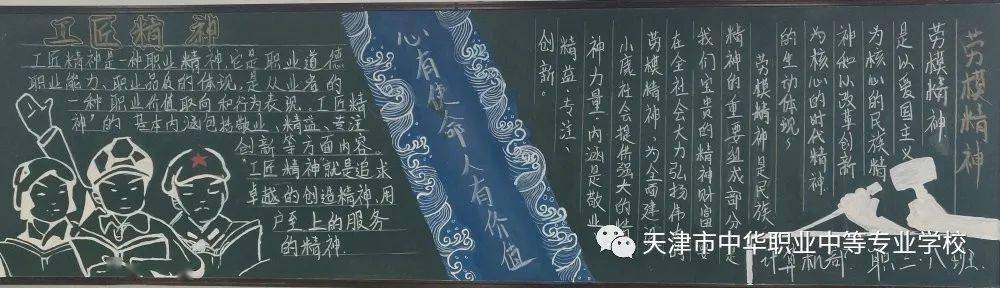 工匠精神
工匠精神是一种职业精神，它是职业道德
职业能力、职业品质的体现，是从业者的
一种职业价值取向和行为表现。"工匠精
神"的基本内涵包括敬业、精益、专注
创新等方面内容。
"工匠精神"就是追求
卓越的创造精神，用
户至上的服务
的精神。
心有使命人有价值
劳模精神
劳模精神
是以爱国主义
为核心的民族精
神和以改革创新
为核心的时代精神
的生动体现。
劳模精神是民族
精神的重要组成部分，是
我们宝贵的精神财富
在全社会大力弘扬伟
劳模精神，为全面建
小康社会提供强大的
神力量，内涵是敬业、
精益、专注、
创新。
计算机部 职二 八班
天津市中华职业中等专业学校